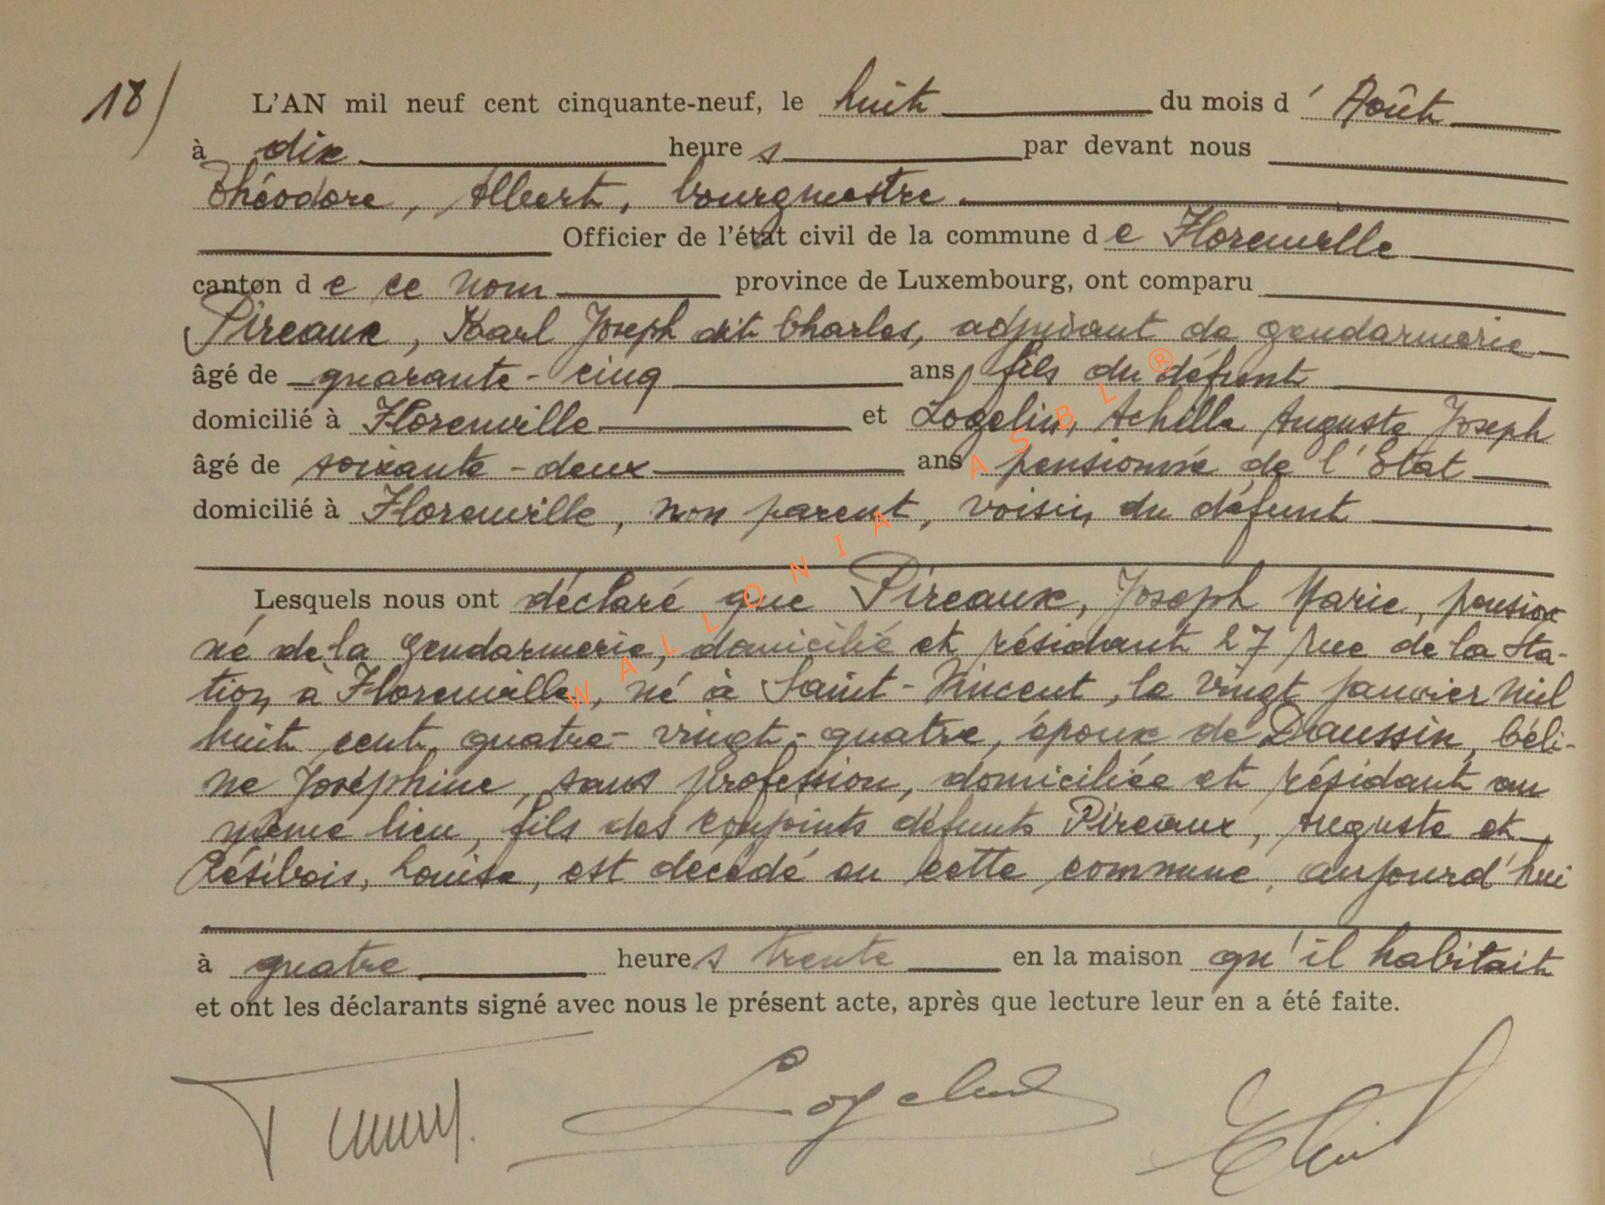 18/
L'AN mil neuf cent cinquante-neuf, le huit du mois d' Août
à dix heures par devant nous
Théodore, Albert, bourgmestre.
Officier de l'état civil de la commune de Florenville
canton de ce nom province de Luxembourg, ont comparu
Pireaux, Karl Joseph dit Charles, adjudant de gendarmerie
âgé de quarante-cinq ans fils du défunt
domicilié à Florenville et Logelin, Achille Auguste Joseph
âgé de soixante-deux ans pensionné de l'Etat
domicilié à Florenville, non parent, voisin du défunt
Lesquels nous ont déclaré que Pireaux, Joseph Marie, pension
né de la Gendarmerie, domicilié et résidant 27 rue de la Sta-
tion à Florenville, né à Saint-Vincent, le vingt janvier mil
huit cent quatre-vingt-quatre, époux de Daussin, Céli-
ne Joséphine, sans profession, domiciliée et résidant au
même lieu, fils des conjoints défunts Pireaux, Auguste et
Résibois, Louise, est décédé en cette commune, aujourd'hui
à quatre heures trente en la maison qu'il habitait
et ont les déclarants signé avec nous le présent acte, après que lecture leur en a été faite.
Logelin
WALLONIA ASBL ®